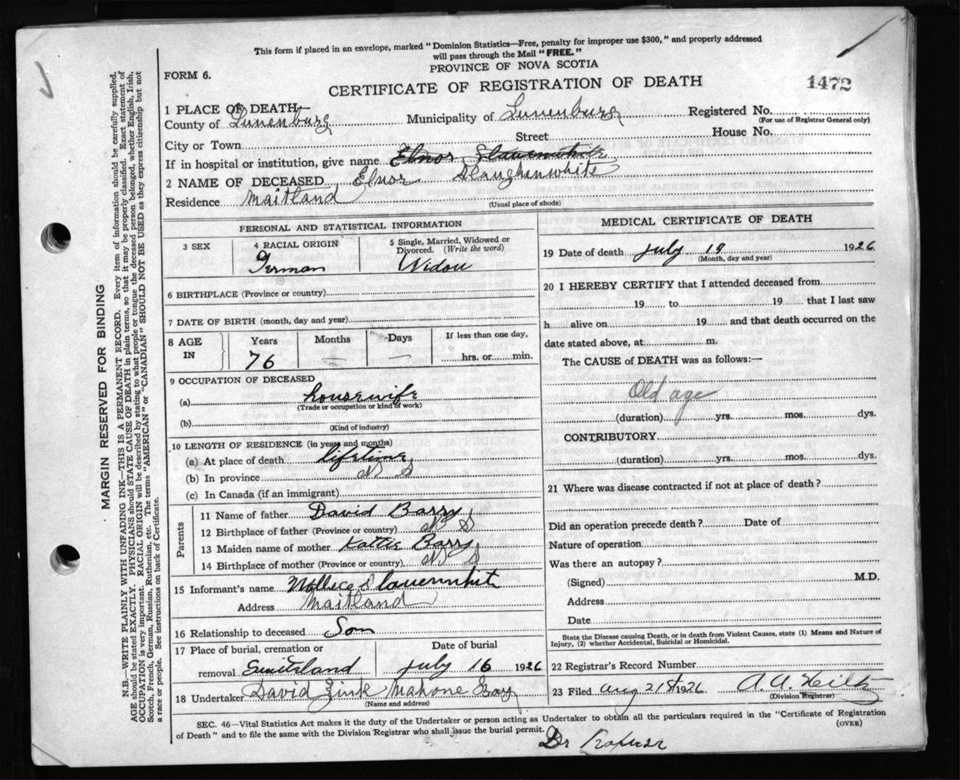 This form if placed in an envelope, marked "Dominion Statistics—Free, penalty for improper use $300," and properly addressed
will pass through the Mail "FREE."
PROVINCE OF NOVA SCOTIA
FORM 6.
CERTIFICATE OF REGISTRATION OF DEATH
1472
1 PLACE OF DEATH—
County of Lunenburg Municipality of Lunenburg Registered No.
(For use of Registrar General only)
City or Town Street House No.
If in hospital or institution, give name Elnor
2 NAME OF DECEASED Elnor Slaughenwhite
Residence Maitland
(Usual place of abode)
PERSONAL AND STATISTICAL INFORMATION
3 SEX 4 RACIAL ORIGIN 5 Single, Married, Widowed or
Divorced. (Write the word)
German Widow
6 BIRTHPLACE (Province or country)
7 DATE OF BIRTH (month, day and year)
8 AGE IN Years Months Days If less than one day,
76 — — hrs. or min.
9 OCCUPATION OF DECEASED
(a) housewife
(Trade or occupation or kind of work)
(b)
(Kind of industry)
10 LENGTH OF RESIDENCE (in years and months)
(a) At place of death lifetime
(b) In province N S
(c) In Canada (if an immigrant)
Parents
11 Name of father David Barry
12 Birthplace of father (Province or country) N S
13 Maiden name of mother Kattie Barry
14 Birthplace of mother (Province or country) N S
15 Informant's name Wallece Slauenwhit
Address Maitland
16 Relationship to deceased Son
17 Place of burial, cremation or Date of burial
removal July 16 1926
18 Undertaker David Zink Mahone Bay
(Name and address)
MEDICAL CERTIFICATE OF DEATH
19 Date of death July 19 1926
(Month, day and year)
20 I HEREBY CERTIFY that I attended deceased from
19 to 19 that I last saw
h alive on 19 and that death occurred on the
date stated above, at m.
The CAUSE of DEATH was as follows:—
Old age
(duration) yrs. mos. dys.
CONTRIBUTORY
(duration) yrs. mos. dys.
21 Where was disease contracted if not at place of death?
Did an operation precede death? Date of
Nature of operation
Was there an autopsy?
(Signed) M.D.
Address
Date
State the Disease causing Death, or in death from Violent Causes, state (1) Means and Nature of
Injury, (2) whether Accidental, Suicidal or Homicidal.
22 Registrar's Record Number
23 Filed Aug 21st 1926 A. A. Hiltz
(Division Registrar)
SEC. 46—Vital Statistics Act makes it the duty of the Undertaker or person acting as Undertaker to obtain all the particulars required in the "Certificate of Registration
of Death" and to file the same with the Division Registrar who shall issue the burial permit.
(OVER)
Dr
MARGIN RESERVED FOR BINDING
N.B.—WRITE PLAINLY WITH UNFADING INK—THIS IS A PERMANENT RECORD. Every item of information should be carefully supplied.
AGE should be stated EXACTLY. PHYSICIANS should STATE CAUSE OF DEATH in plain terms, so that it may be properly classified. Exact statement of
OCCUPATION is very important. RACIAL ORIGIN will be described by stating to what people or tongue the deceased person belonged, whether English, Irish,
Scotch, French, German, Russian, Ruthenian, etc. The terms "AMERICAN" or "CANADIAN" SHOULD NOT BE USED as they express citizenship but not
a race or people. See instructions on back of Certificate.